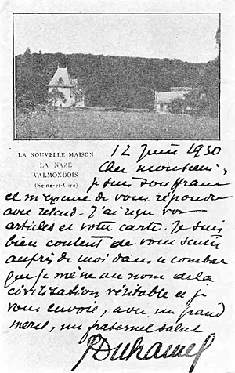 LA NOUVELLE MAISON
LA NAZE
VALMONDOIS
(Seine-et-Oise)
12 Juin 1930
Cher monsieur,
je suis souffrant
et m'excuse de vous répondre
avec retard. J'ai reçu vos
articles et votre carte. Je suis
bien content de vous sentir
auprès de moi dans le combat
que je mène au nom de la
civilisation véritable et je
vous envoie, avec un grand
merci, un fraternel salut
GDuhamel